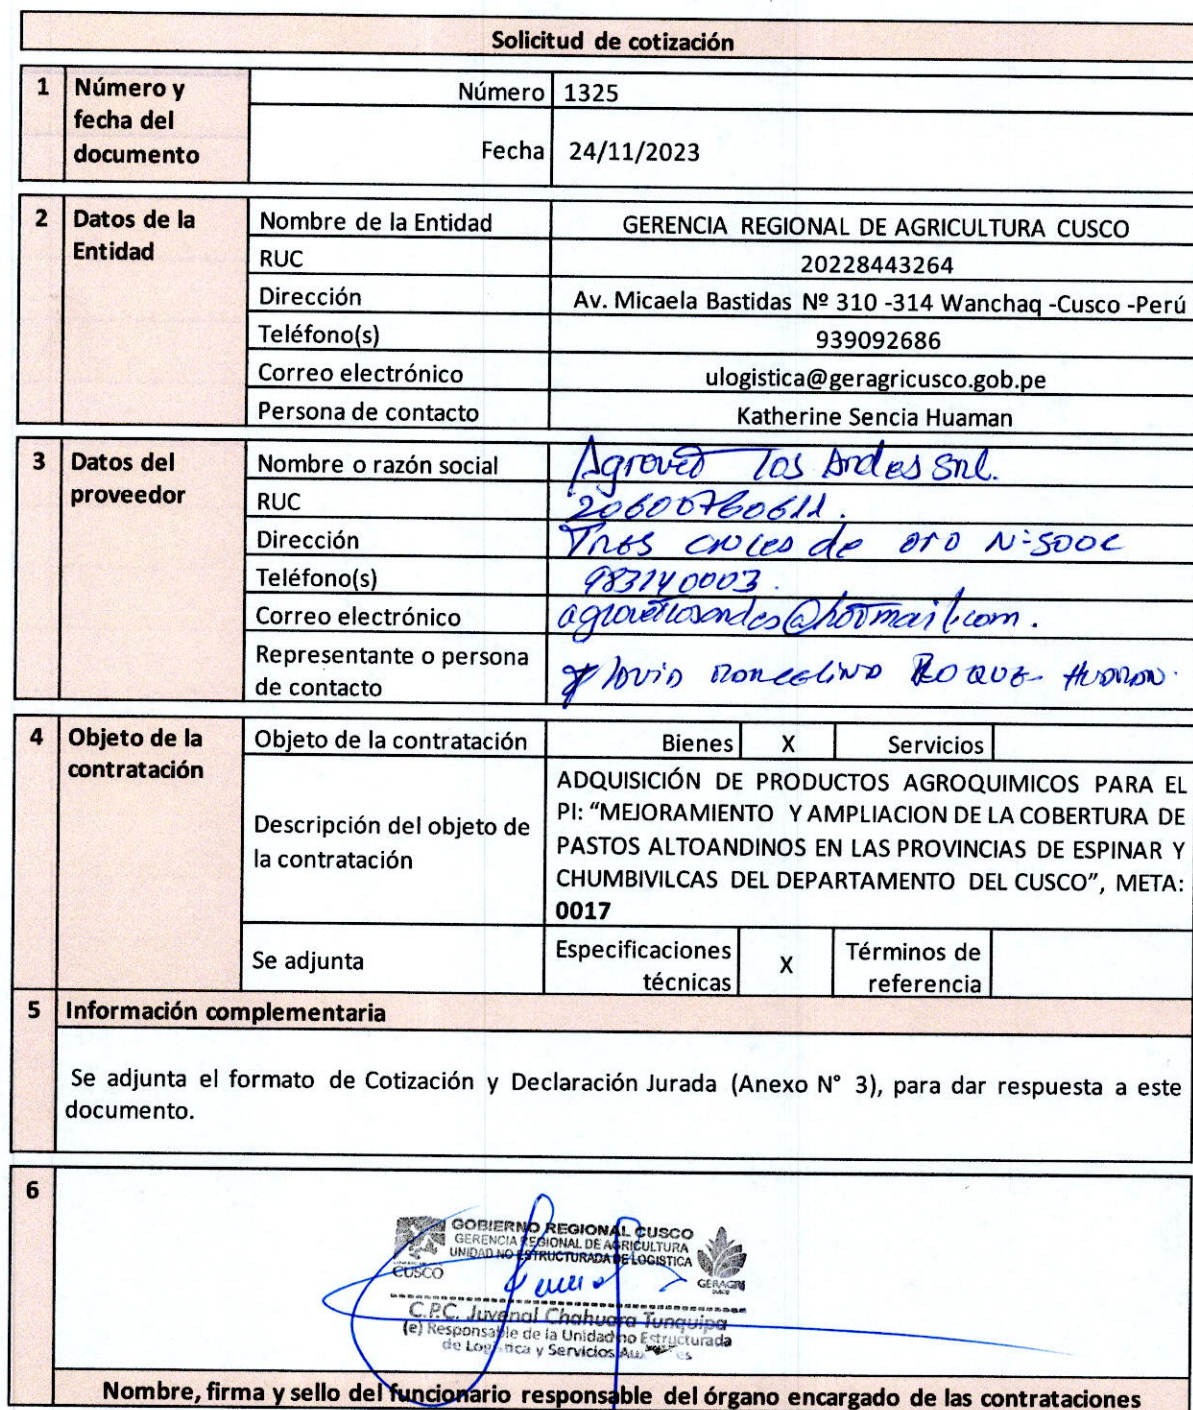 Solicitud de cotización
1 Número y fecha del documento
Número 1325
Fecha 24/11/2023
2 Datos de la Entidad
Nombre de la Entidad GERENCIA REGIONAL DE AGRICULTURA CUSCO
RUC 20228443264
Dirección Av. Micaela Bastidas Nº 310 -314 Wanchaq -Cusco -Perú
Teléfono(s) 939092686
Correo electrónico ulogistica@geragricusco.gob.pe
Persona de contacto Katherine Sencia Huaman
3 Datos del proveedor
Nombre o razón social Agrovet Los Andes Srl.
RUC 20600760611.
Dirección Tres cruces de oro N- 500C
Teléfono(s) 983240003.
Correo electrónico agrovetlosandes@hotmail.com.
Representante o persona de contacto ROQUE
4 Objeto de la contratación
Objeto de la contratación Bienes X Servicios
Descripción del objeto de la contratación
ADQUISICIÓN DE PRODUCTOS AGROQUIMICOS PARA EL
PI: “MEJORAMIENTO Y AMPLIACION DE LA COBERTURA DE
PASTOS ALTOANDINOS EN LAS PROVINCIAS DE ESPINAR Y
CHUMBIVILCAS DEL DEPARTAMENTO DEL CUSCO”, META:
0017
Se adjunta Especificaciones técnicas X Términos de referencia
5 Información complementaria
Se adjunta el formato de Cotización y Declaración Jurada (Anexo N° 3), para dar respuesta a este
documento.
6
GOBIERNO REGIONAL CUSCO
GERENCIA REGIONAL DE AGRICULTURA
UNIDAD NO ESTRUCTURADA DE LOGISTICA
CUSCO
GERAGRI
C.P.C. Juvenal Chahuara Tunquipa
(e) Responsable de la Unidad no Estructurada
de Logística y Servicios
Nombre, firma y sello del funcionario responsable del órgano encargado de las contrataciones